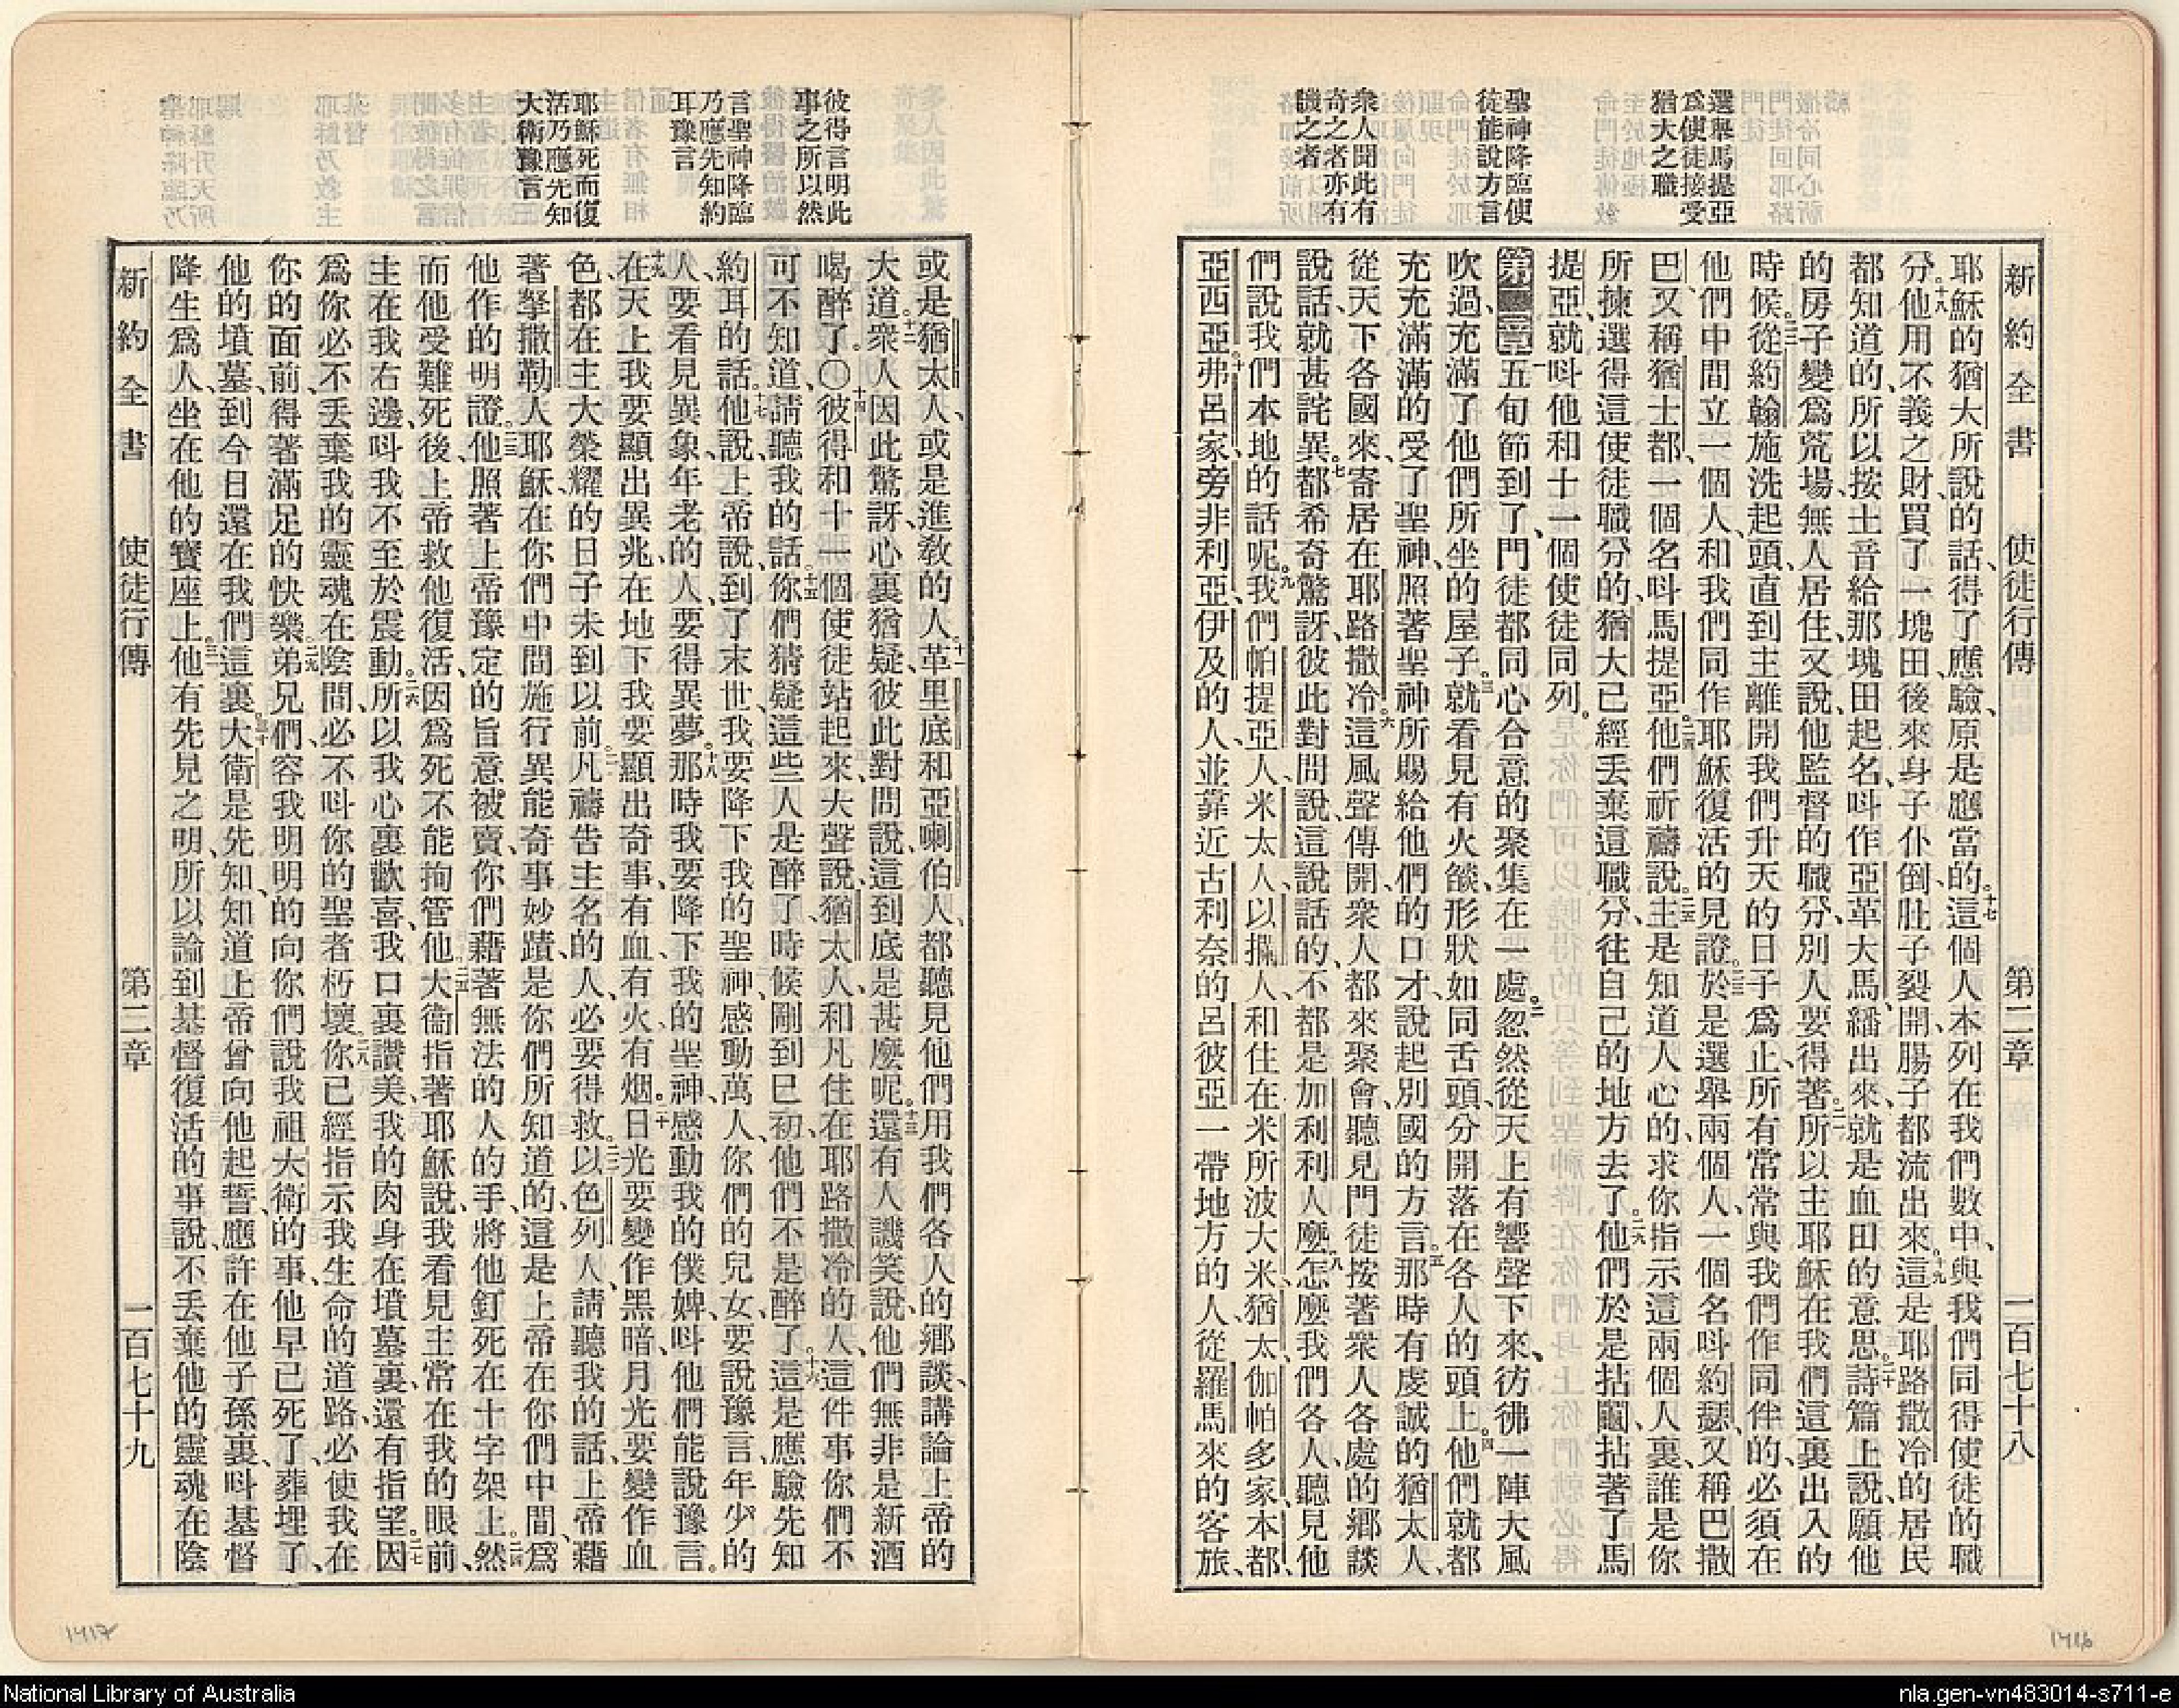 新約全書 使徒行傳 第二章 一百七十八
選舉馬提亞
爲使徒接受
猶大之職
聖神降臨使
徒能說方言
衆人聞此有
奇之者亦有
譏之者
耶穌的猶大所說的話、得了應驗、原是應當的。十七這個人本列在我們數中、與我們同得使徒的職
分。十八他用不義之財、買了一塊田後來身子仆倒、肚子裂開、腸子都流出來。十九這是耶路撒冷的居民
都知道的、所以按土音給那塊田起名、呌作亞革大馬、繙出來、就是血田的意思。二十詩篇上說、願他
的房子變爲荒場、無人居住、又說、他監督的職分、別人要得著。二一所以主耶穌在我們這裏出入的
時候。二二從約翰施洗起頭、直到主離開我們升天的日子爲止、所有常常與我們作同伴的、必須在
他們中間立一個人、和我們同作耶穌復活的見證。二三於是選舉兩個人、一個名呌約瑟、又稱巴撒
巴、又稱猶士都、一個名呌馬提亞。二四他們祈禱說。二五主是知道人心的、求你指示這兩個人裏、誰是你
所揀選得這使徒職分的、猶大已經丟棄這職分、往自己的地方去了。二六他們於是拈鬮、拈著了馬
提亞、就呌他和十一個使徒同列。
第二章一五旬節到了、門徒都同心合意的聚集在一處。二忽然從天上有響聲下來、彷彿一陣大風
吹過、充滿了他們所坐的屋子。三就看見有火燄、形狀如同舌頭、分開落在各人的頭上。四他們就都
充充滿滿的受了聖神、照著聖神所賜給他們的口才、說起別國的方言。五那時有虔誠的猶太人、
從天下各國來、寄居在耶路撒冷。六這風聲傳開、衆人都來聚會、聽見門徒按著衆人各處的鄉談
說話、就甚詫異。七都希奇驚訝、彼此對問說、這說話的、不都是加利利人麼。八怎麼我們各人、聽見他
們說我們本地的話呢。九我們帕提亞人、米太人、以攔人、和住在米所波大米、猶太、伽帕多家、本都、
亞西亞。十弗呂家、旁非利亞、伊及的人、並靠近古利奈的呂彼亞一帶地方的人、從羅馬來的客旅、
彼得言明此
事之所以然
言聖神降臨
乃應先知約
耳豫言
耶穌死而復
活乃應先知
大衛豫言
或是猶太人、或是進敎的人。十一革里底和亞喇伯人、都聽見他們用我們各人的鄉談、講論上帝的
大道。十二衆人因此驚訝、心裏猶疑、彼此對問說、這到底是甚麼呢。十三還有人譏笑說、他們無非是新酒
喝醉了。〇十四彼得和十一個使徒站起來、大聲說、猶太人、和凡住在耶路撒冷的人、這件事你們不
可不知道、請聽我的話。十五你們猜疑這些人是醉了、時候剛到巳初、他們不是醉了。十六這是應驗先知
約耳的話。十七他說、上帝說、到了末世、我要降下我的聖神、感動萬人、你們的兒女、要說豫言、年少的
人、要看見異象、年老的人、要得異夢。十八那時我要降下我的聖神、感動我的僕婢、呌他們能說豫言。
十九在天上我要顯出異兆、在地下我要顯出奇事、有血、有火、有烟。二十日光要變作黑暗、月光要變作血
色、都在主大榮耀的日子未到以前。二一凡禱告主名的人、必要得救。二二以色列人、請聽我的話、上帝藉
著拏撒勒人耶穌、在你們中間施行異能奇事妙蹟、是你們所知道的、這是上帝在你們中間、爲
他作的明證。二三他照著上帝豫定的旨意被賣、你們藉著無法的人的手、將他釘死在十字架上。二四然
而他受難死後、上帝救他復活、因爲死不能拘管他。二五大衞指著耶穌說、我看見主常在我的眼前、
主在我右邊、呌我不至於震動。二六所以我心裏歡喜、我口裏讚美、我的肉身在墳墓裏、還有指望。二七因
爲你必不丟棄我的靈魂在陰間、必不呌你的聖者朽壞。二八你已經指示我生命的道路、必使我在
你的面前、得著滿足的快樂。二九弟兄們、容我明明的向你們說我祖大衛的事、他早已死了、葬埋了、
他的墳墓、到今日還在我們這裏。三十大衛是先知、知道上帝曾向他起誓、應許在他子孫裏、呌基督
降生爲人、坐在他的寶座上。三一他有先見之明、所以論到基督復活的事說、不丟棄他的靈魂在陰
新約全書 使徒行傳 第二章 一百七十九
1417
1416
National Library of Australia
nla.gen-vn483014-s711-e